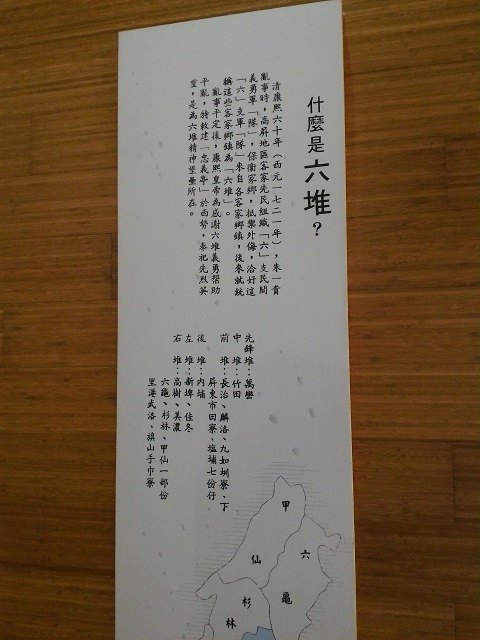 什麼是六堆？
清康熙六十年（西元一七二一年），朱一貴
亂事時，高屏地區客家先民組織「六」支民間
義勇軍「隊」，保衛家鄉，抵禦外侮，洽好這
「六」支軍「隊」來自各客家鄉鎮，後來就統
稱這些客家鄉鎮為「六堆」。
亂事平定後，康熙皇帝為感謝六堆義勇幫助
平亂，特敕建「忠義亭」於西勢，奉祀先烈英
靈，是為六堆精神堡壘所在。
先鋒堆：萬巒
中　堆：竹田
前　堆：長治、麟洛、九如圳寮、下
屏東市田寮、塩埔七份仔
後　堆：內埔
左　堆：新埤、佳冬
右　堆：高樹、美濃
六龜、杉林、甲仙一部份
里港武洛、旗山手巾寮
甲
仙
六
龜
杉
林